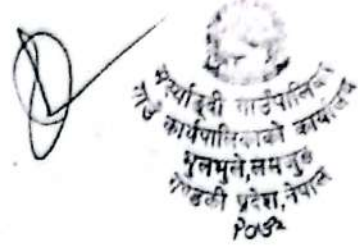 मर्स्याङ्दी गाउँपालिका
गाउँ कार्यपालिकाको कार्यालय
भुलभुले,लमजुङ
गण्डकी प्रदेश,नेपाल
२०७२